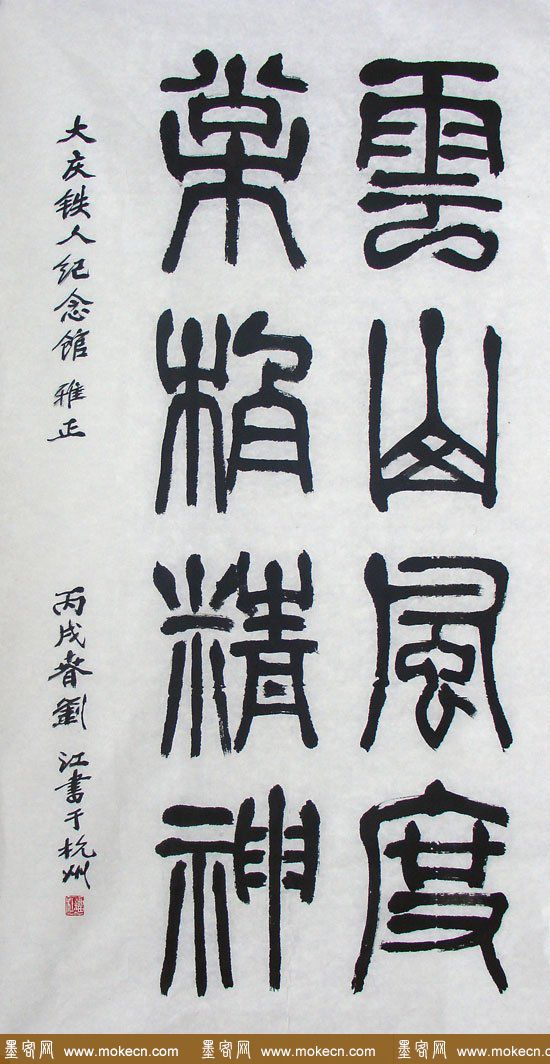 雲山風度
松柏精神
大庆铁人纪念馆 雅正
丙戌春劉江書于杭州
墨客网 www.mokecn.com 墨客网 www.mokecn.com 墨客网 www.mokecn.com